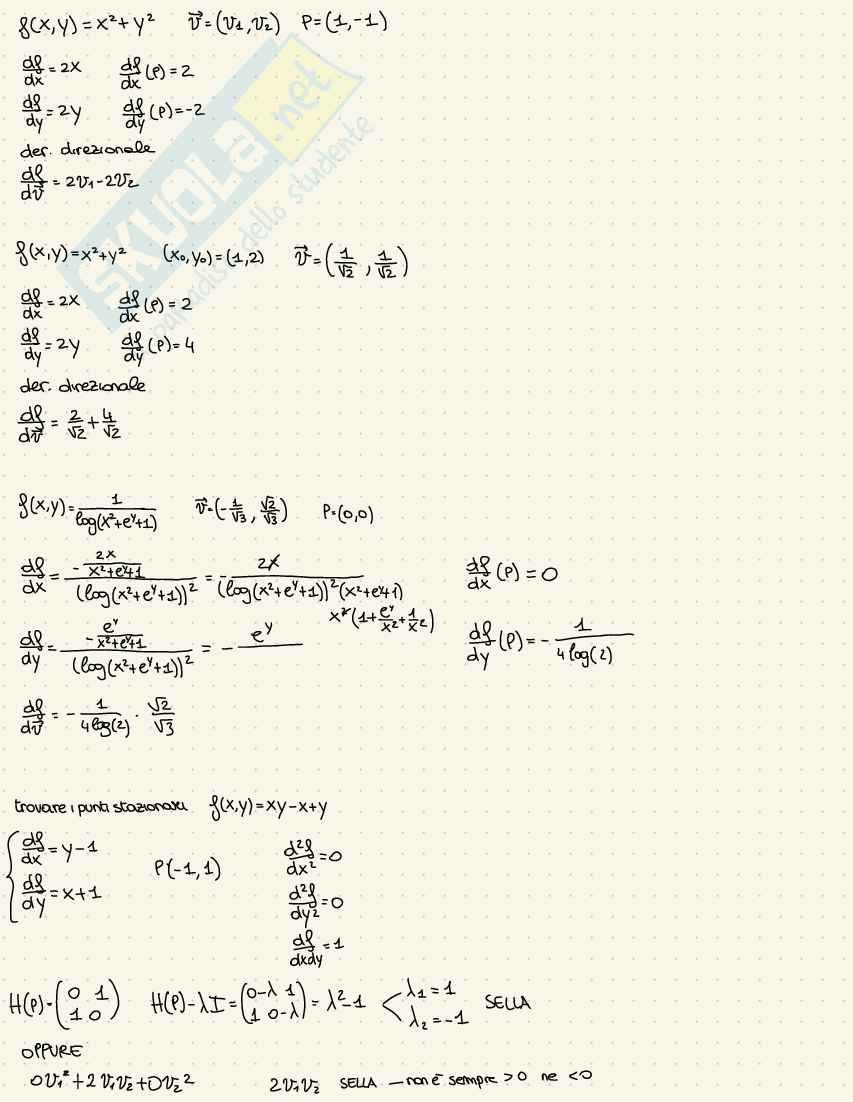 f(x,y) = x²+y²   v⃗ = (v₁,v₂)   P = (1,-1)
df/dx = 2x   df/dx (P) = 2
df/dy = 2y   df/dy (P) = -2
der. direzionale
df/dv⃗ = 2v₁-2v₂
SKUOLA.net
paradiso dello studente
f(x,y) = x²+y²   (x₀,y₀) = (1,2)   v⃗ = (1/√2 , 1/√2)
df/dx = 2x   df/dx (P) = 2
df/dy = 2y   df/dy (P) = 4
der. direzionale
df/dv⃗ = 2/√2 + 4/√2
f(x,y) = 1/log(x²+e^y+1)   v⃗ = (-1/√3 , √2/√3)   P = (0,0)
df/dx = (-2x/(x²+e^y+1))/(log(x²+e^y+1))² = - 2x/((log(x²+e^y+1))²(x²+e^y+1))   df/dx (P) = 0
x²(1+e^y/x²+1/x²)
df/dy = (-e^y/(x²+e^y+1))/(log(x²+e^y+1))² = - e^y/   df/dy (P) = - 1/(4log(2))
df/dv⃗ = - 1/(4log(2)) · √2/√3
trovare i punti stazionari   f(x,y) = xy-x+y
{ df/dx = y-1   P(-1,1)   d²f/dx² = 0
df/dy = x+1   d²f/dy² = 0
df/dxdy = 1
H(P) = (0 1 / 1 0)   H(P)-λI = (0-λ 1 / 1 0-λ) = λ²-1 < λ₁=1 λ₂=-1   SELLA
OPPURE
0v₁²+2v₁v₂+0v₂²   2v₁v₂   SELLA — non è sempre >0 ne <0